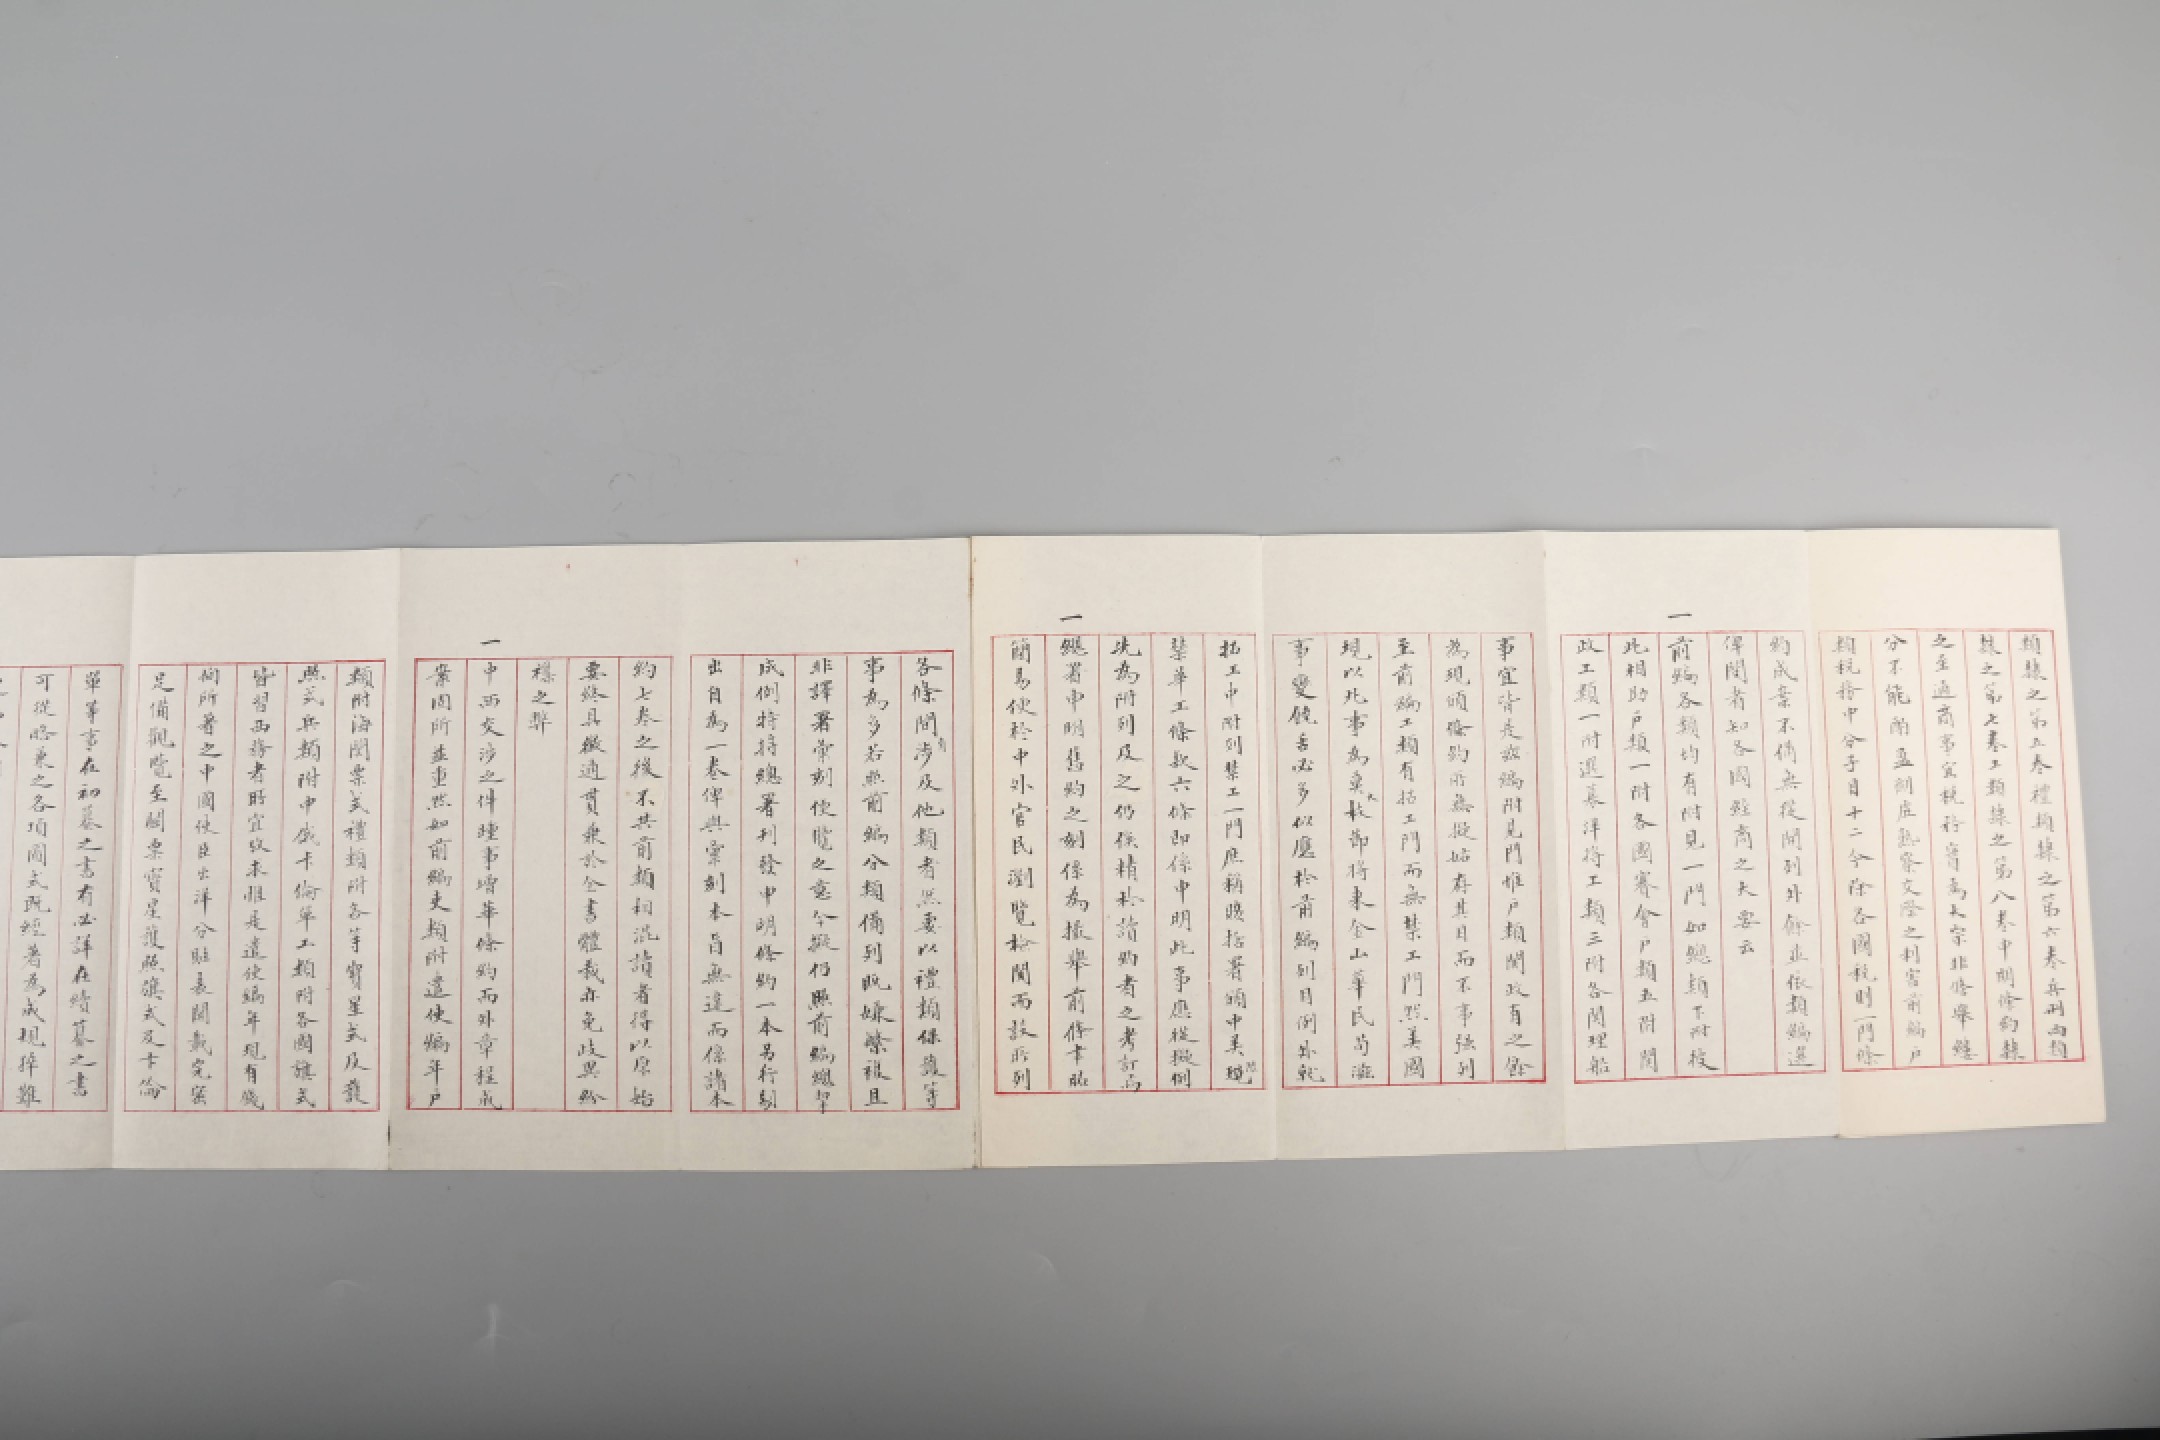 類隸之第五卷禮類隸之第六卷兵刑兩類
隸之第七卷工類隸之第八卷申明條約隸
之至通商事宜稅務實為大宗非條舉縷
分不能酌盈劑虛熟察交際之利害前編戶
類稅務中分子目十二今除各國稅則一門條
約成案不備無從開列外餘並依類編選
俾閱者知各國經商之大要云
一
前編各類均有附見一門如總類下附技
此相助戶類一附各國賽會戶類五附關
政工類一附選募洋將工類三附各關理船
事宜皆是茲編附見門惟戶類關政有之餘
為現頒條約所無擬姑存其目而不事強列
至前編工類有招工門而無禁工門然美國
現以此事為莫大款節將來全山華民苟滋
事變饒舌必多似應於前編列目例外就
招工中附列禁工一門庶稱賅括署頒中美現
禁華工條款六條即係中明此事應從擬例
先為附列及之仍係精於讀約者之考訂而
一
總署申明舊約之刻係為撮舉前條書昭
簡易便於中外官民瀏覽檢閱而設所列
各條間有涉及他類者然要以禮類保護等
事為多若照前編分類備列既嫌繁複且
非譯署彙刻便覽之意今擬仍照前編總署
成例特將總署刊發申明條約一本另行刻
出自為一卷俾與彙刻本旨無違而係諸本
約七卷之後不共前類相混讀者得以原始
要終具徵通貫兼於全書體裁亦免歧異紛
穰之弊
一
中西交涉之件踵事增華條約而外章程成
案固所並重然如前編吏類附遣使編年戶
類附海關票式禮類附各等寶星式及護
照式兵類附中成卡倫單工類附各國旗式
皆習西務者所宜攷求惟是遣使編年現有錢
恂所著之中國使臣出洋分駐表開載完密
足備觀覽至關票寶星護照旗式及卡倫
單等事在初纂之書有必詳在續纂之書
可從略兼之各項圖式既經著為成規揮難